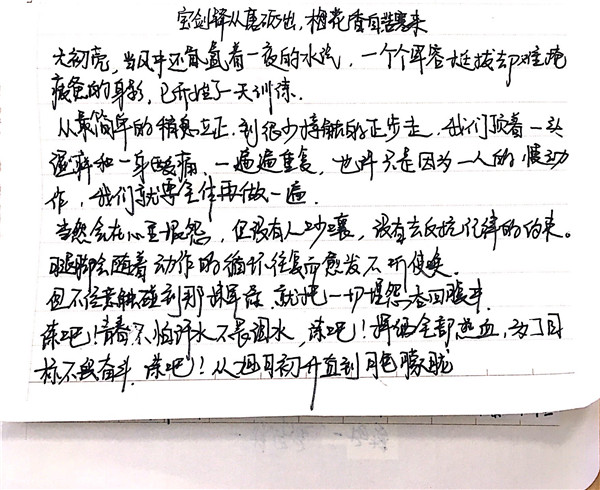 宝剑锋从磨砺出，梅花香自苦寒来
天初亮，当风中还氤氲着一夜的水汽，一个个军姿挺拔却难掩
疲惫的身影，已开始了一天训练。
从最简单的稍息立正，到很少接触的正步走，我们顶着一头
湿
和一身酸痛，一遍遍重复，也许只是因为一人的慢动
作，我们就要全体再做一遍。
当然会在心里埋怨，但没有人吵嚷，没有去反抗纪律的约束。
腿脚会随着动作的循环往复而愈发不听使唤。
但不经意触碰到那军
，就把一切埋怨
回腹中。
练吧！青春不怕汗水不畏泪水，练吧！挥洒全部热血，为了目
标不懈奋斗，练吧！从旭日初升直到月色朦胧